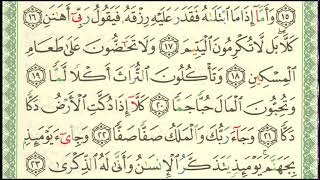 ١٥ وَأَمَّآ إِذَا مَا ٱبْتَلَىٰهُ فَقَدَرَ عَلَيْهِ رِزْقَهُۥ فَيَقُولُ رَبِّىٓ أَهَٰنَنِ
١٦ كَلَّا ۖ بَل لَّا تُكْرِمُونَ ٱلْيَتِيمَ ١٧ وَلَا تَحَٰٓضُّونَ عَلَىٰ طَعَامِ
ٱلْمِسْكِينِ ١٨ وَتَأْكُلُونَ ٱلتُّرَاثَ أَكْلًا لَّمًّا ١٩
وَتُحِبُّونَ ٱلْمَالَ حُبًّا جَمًّا ٢٠ كَلَّآ إِذَا دُكَّتِ ٱلْأَرْضُ دَكًّا
دَكًّا ٢١ وَجَآءَ رَبُّكَ وَٱلْمَلَكُ صَفًّا صَفًّا ٢٢ وَجِا۟ىٓءَ يَوْمَئِذٍۭ
بِجَهَنَّمَ ۚ يَوْمَئِذٍ يَتَذَكَّرُ ٱلْإِنسَٰنُ وَأَنَّىٰ لَهُ ٱلذِّكْرَىٰ ٢٣